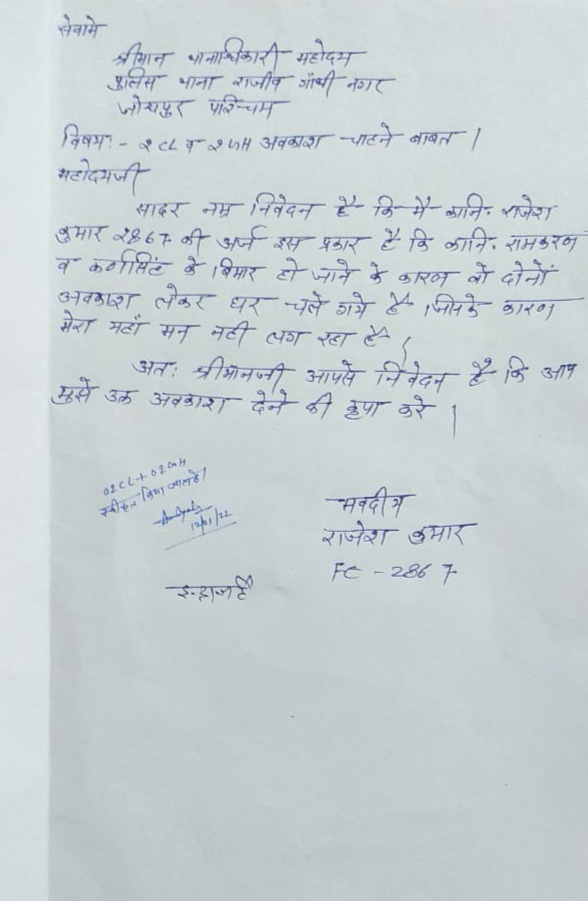 सेवामे
श्रीमान थानाधिकारी महोदय
पुलिस थाना राजीव गाँधी नगर
जोधपुर पश्चिम
विषय:- २ CL व २ GH अवकाश चाहने बाबत।
महोदयजी
सादर नम्र निवेदन है कि मै कानि. राजेश
कुमार 2867 की अर्ज इस प्रकार है कि कानि. रामकरण
व कर्णसिंह के बिमार हो जाने के कारण वो दोनों
अवकाश लेकर घर चले गये है। जिसके कारण
मेरा यहाँ मन नही लग रहा है।
अत: श्रीमानजी आपसे निवेदन है कि आप
मुझे उक्त अवकाश देने की कृपा करे।
02 CL + 02 GH
स्वीकृत किया जाता है।
12/01/22
भवदीय
राजेश कुमार
FC - 2867